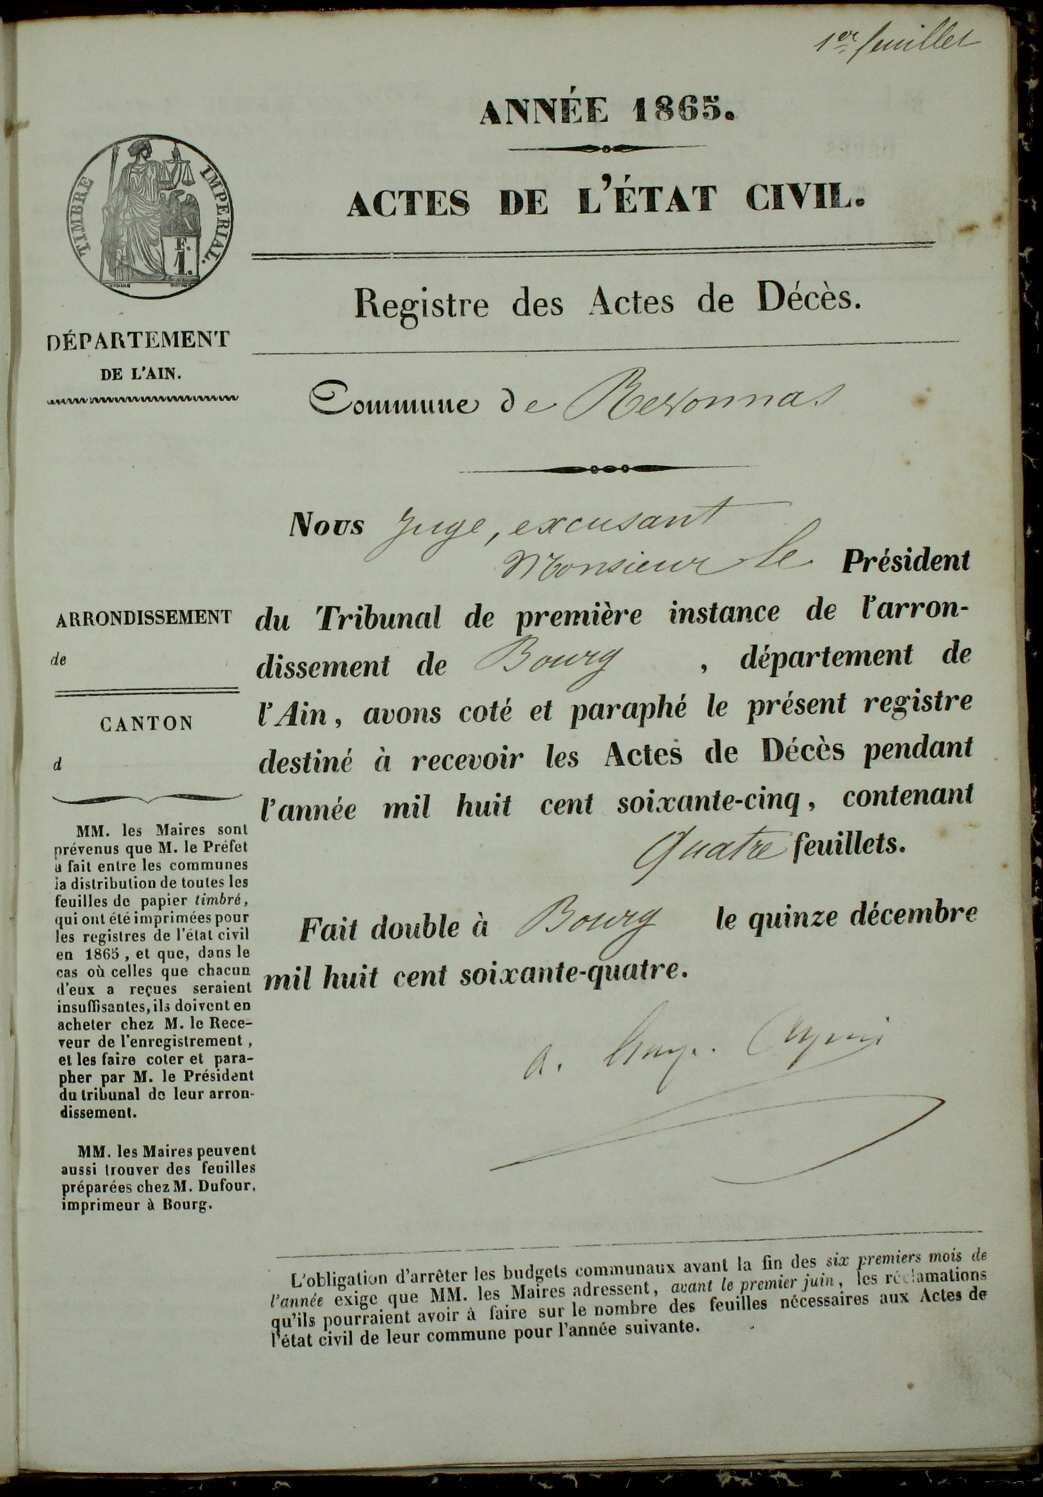 1er feuillet
ANNÉE 1865.
ACTES DE L'ÉTAT CIVIL.
TIMBRE IMPERIAL.
F.
1.
Registre des Actes de Décès.
DÉPARTEMENT
DE L'AIN.
Commune de Revonnas
Nous Juge, excusant
Monsieur le Président
du Tribunal de première instance de l'arron-
dissement de Bourg , département de
l'Ain, avons coté et paraphé le présent registre
destiné à recevoir les Actes de Décès pendant
l'année mil huit cent soixante-cinq, contenant
Quatre feuillets.
Fait double à Bourg le quinze décembre
mil huit cent soixante-quatre.
ARRONDISSEMENT
de
CANTON
d
MM. les Maires sont
prévenus que M. le Préfet
a fait entre les communes
la distribution de toutes les
feuilles de papier timbré,
qui ont été imprimées pour
les registres de l'état civil
en 1865, et que, dans le
cas où celles que chacun
d'eux a reçues seraient
insuffisantes, ils doivent en
acheter chez M. le Rece-
veur de l'enregistrement,
et les faire coter et para-
pher par M. le Président
du tribunal de leur arron-
dissement.
MM. les Maires peuvent
aussi trouver des feuilles
préparées chez M. Dufour,
imprimeur à Bourg.
L'obligation d'arrêter les budgets communaux avant la fin des six premiers mois de
l'année exige que MM. les Maires adressent, avant le premier juin, les réclamations
qu'ils pourraient avoir à faire sur le nombre des feuilles nécessaires aux Actes de
l'état civil de leur commune pour l'année suivante.